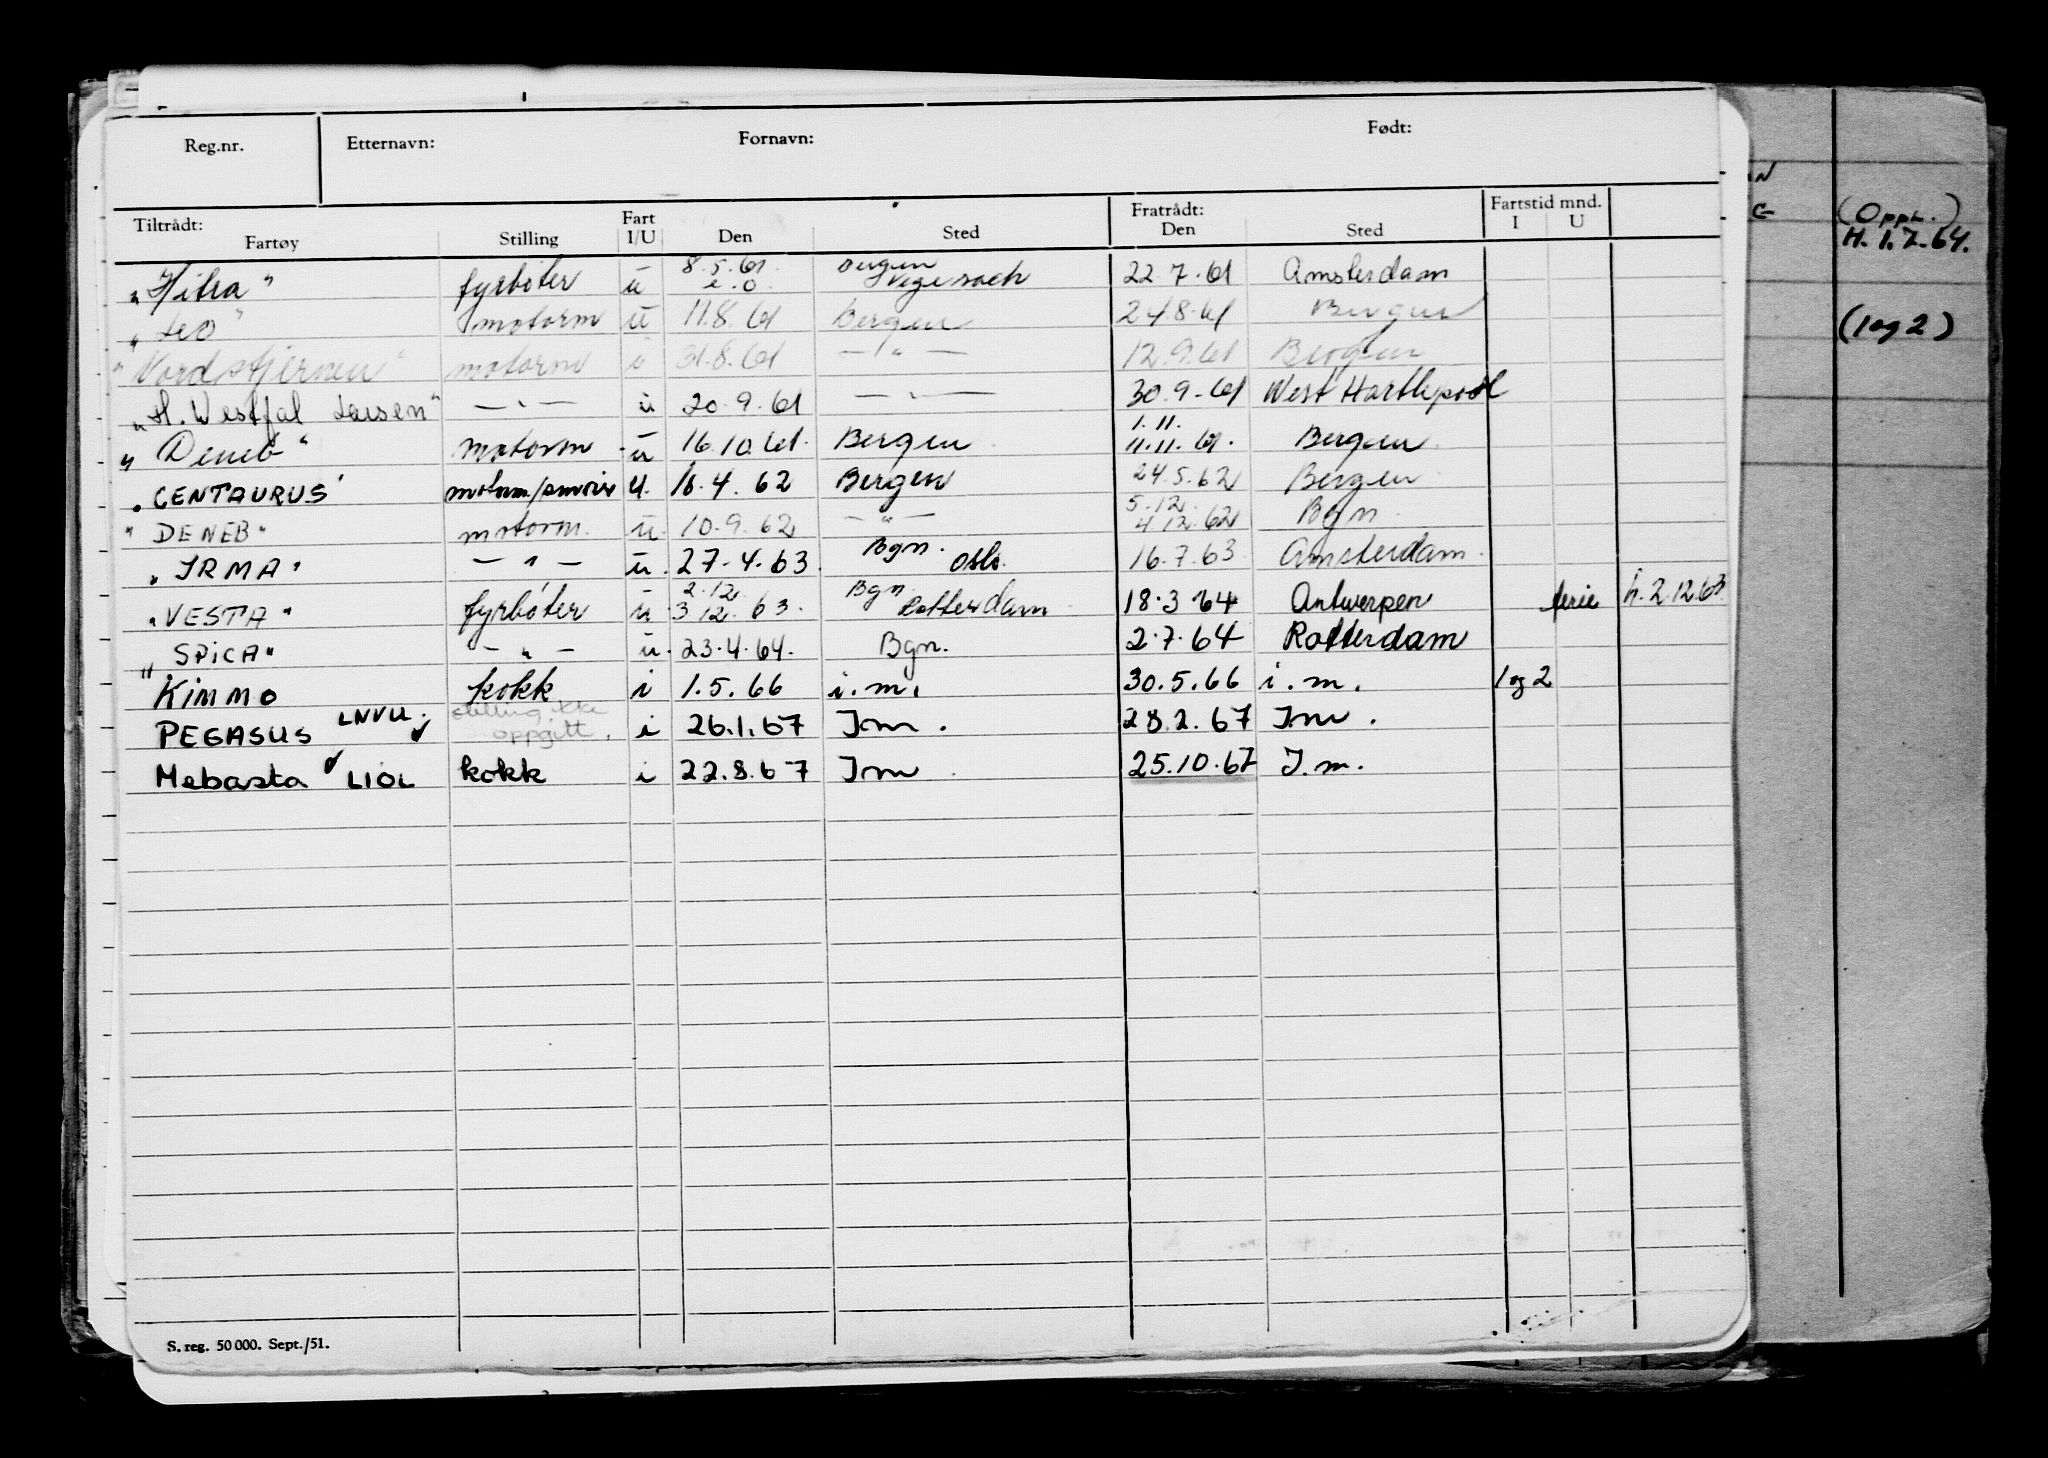 Reg.nr. Etternavn: Fornavn: Født:
Tiltrådt: Fart Fratrådt: Fartstid mnd.
Fartøy Stilling I/U Den Sted Den Sted I U
"Hitra" fyrbøter u 8.5.61 Bergen Vegesack 22.7.61 Amsterdam
"Leo" motorm u 11.8.61 Bergen 24.8.61 Bergen
"Nordstjernen" motorm u 31.8.61 — " — 12.9.61 Bergen
"H. Westfal Larsen" — " — u 20.9.61 — " — 30.9.61 West Hartlepool
"Deneb" motorm u 16.10.61 Bergen 1.11. 11.11.61. Bergen
"CENTAURUS" motorm/ u. 16.4.62 Bergen 24.5.62 Bergen
"DENEB" motorm. u. 10.9.62 — " — 5.12. 4.12.62 Bgn
"IRMA" — " — u. 27.4.63. Bgn. Oslo. 16.7.63 Amsterdam.
"VESTA" fyrbøter u 2.12. 3.12.63. Bgn Rotterdam 18.3 64 Antwerpen ferie h. 2.12.63
"SPICA" — " — u. 23.4.64. Bgn. 2.7.64 Rotterdam
KIMMO kokk i 1.5.66 i.m. 30.5.66 i.m. 1 og 2
PEGASUS LNVU. stilling ikke oppgitt. i 26.1.67 I.m. 28.2.67 I.m.
Mebasta LIOL kokk i 22.8.67 I.m. 25.10.67 I.m.
S. reg. 50 000. Sept./51.
N
G
(Oppl.)
H. 1.7.64.
(1 og 2)